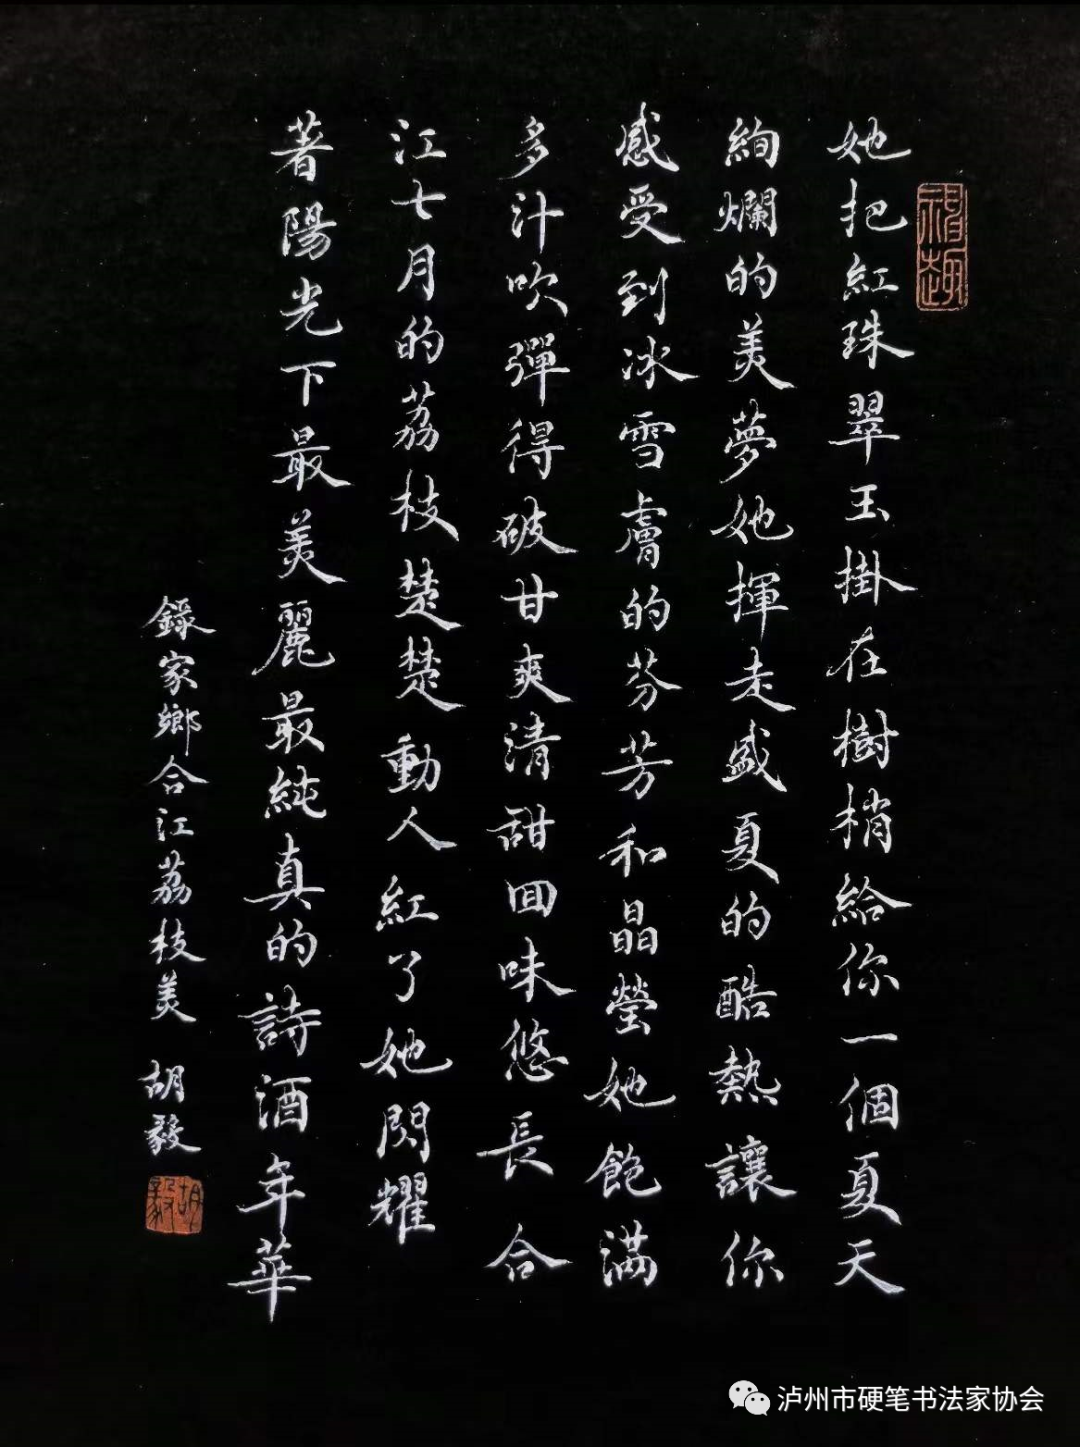 她把紅珠翠玉掛在樹梢給你一個夏天
絢爛的美夢她揮走盛夏的酷熱讓你
感受到冰雪膚的芬芳和晶瑩她飽滿
多汁吹彈得破甘爽清甜回味悠長合
江七月的荔枝楚楚動人紅了她閃耀
著陽光下最美麗最純真的詩酒年華
錄家鄉合江荔枝美 胡毅
胡毅
泸州市硬笔书法家协会